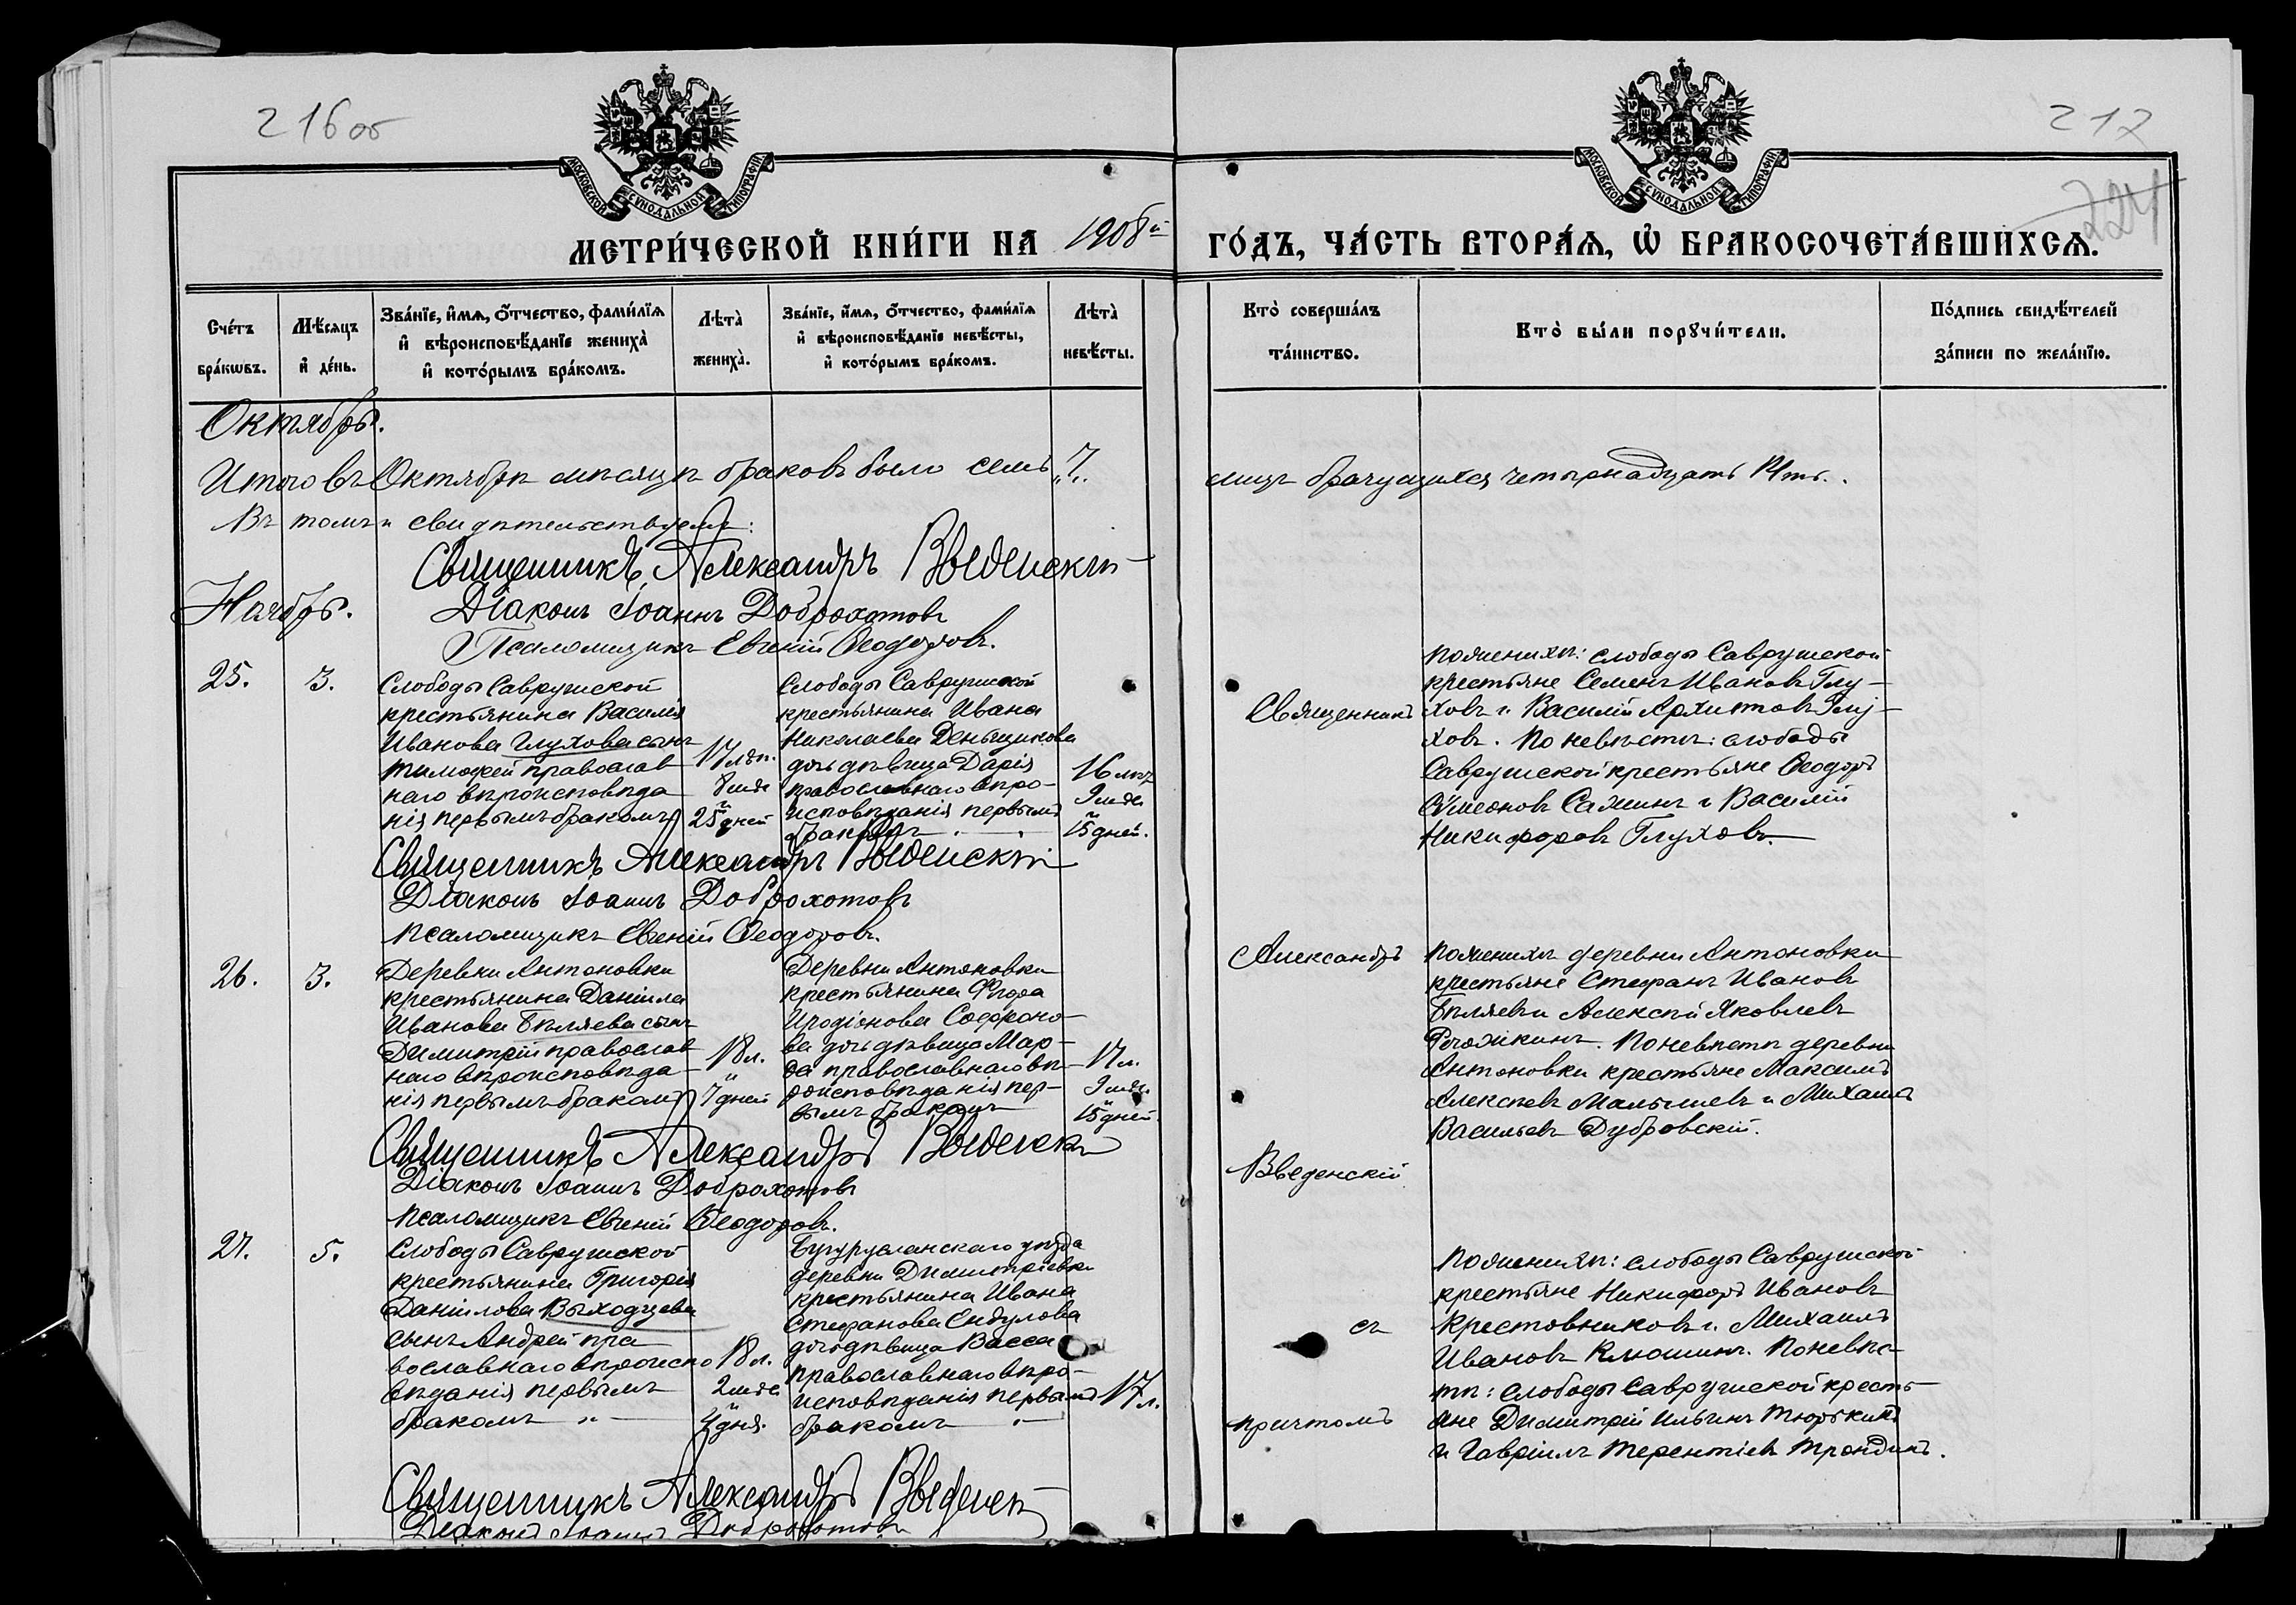 216 об
217
224
МОСКОВСКОЙ СѴНОДАЛЬНОЙ ТИПОГРАФІИ
МОСКОВСКОЙ СѴНОДАЛЬНОЙ ТИПОГРАФІИ
МЕТРИ́ЧЕСКОЙ КНИ́ГИ НА 1908й ГО́ДЪ, ЧА́СТЬ ВТОРА́Я, Ѿ БРАКОСОЧЕТА́ВШИХСЯ.
Сче́тъ
бра́кѡвъ.
Мѣ́сяцъ
и҆ де́нь.
Зва́нїе, и҆́мя, ѻ҆́тчество, фами́лїя
и҆ вѣроисповѣ́данїе жениха̀
и҆ кото́рымъ бра́комъ.
Лѣта̀
жениха̀.
Зва́нїе, и҆́мя, ѻ҆́тчество, фами́лїя
и҆ вѣроисповѣ́данїе невѣ́сты,
и҆ кото́рымъ бра́комъ.
Лѣта̀
невѣ́сты.
Кто̀ соверша́лъ
та́инство.
Кто̀ бы́ли порꙋчи́тели.
По́дпись свидѣ́телей
за́писи по жела́нїю.
Октябрь.
Итого въ Октябрѣ мѣсяцѣ браковъ было семь „7„ лицъ брачущихся четырнадцать 14ть.
Въ томъ и свидѣтельствуемъ:
Священникъ Александръ Введенскій
Діаконъ Іоаннъ Доброхотовъ
Псаломщикъ Евгеній Ѳеодоровъ.
Ноябрь.
25.
3.
Слободы Саврушской
крестьянина Василія
Иванова Глухова сынъ
Тимоѳей православ
наго вѣроисповѣда
нія первымъ бракомъ
17 лѣт.
8 мѣс.
и
25 дней
Слободы Саврушской
крестьянина Ивана
Николаева Деньщикова
дочь дѣвица Дарія
православнаго вѣро-
исповѣданія первымъ
бракомъ
16 лѣт
9 мѣс.
и
15 дней.
Священникъ
По женихѣ: слободы Саврушской
крестьяне Семенъ Ивановъ Глу-
ховъ и Василій Архиповъ Глу-
ховъ. По невѣстѣ: слободы
Саврушской крестьяне Ѳеодоръ
Симеоновъ Саминъ и Василій
Никифоровъ Глуховъ.
Священникъ Александръ Введенскій
Діаконъ Іоаннъ Доброхотовъ
Псаломщикъ Евгеній Ѳеодоровъ.
26.
3.
Деревни Антоновки
крестьянина Даніила
Иванова Бѣляева сынъ
Димитрій православ
наго вѣроисповѣда
нія первымъ бракомъ
18 л.
и
7 дней
Деревни Антоновки
крестьянина Ѳ
Иродіонова Софроно-
ва дочь дѣвица Мар-
ѳа православнаго вѣ-
роисповѣданія пер-
вымъ бракомъ
17 л.
9 мѣс.
и
15 дней.
Александръ
По женихѣ деревни Антоновки
крестьяне Стефанъ Ивановъ
Бѣляевъ и Алексѣй Яковлевъ
По невѣстѣ деревни
Антоновки крестьяне Максимъ
Алексѣевъ Малышевъ и Михаилъ
Васильевъ Дубровскій.
Священникъ Александръ Введенскій
Діаконъ Іоаннъ Доброхотовъ
Псаломщикъ Евгеній Ѳеодоровъ.
Введенскій
27.
5.
Слободы Саврушской
крестьянина Григорія
Даніилова Выходцева
сынъ Андрей пра
вославнаго вѣроиспо
вѣданія первымъ
бракомъ
18 л.
2 мѣс.
и
4 дня.
Бугурусланскаго уѣзда
деревни Димитріевки
крестьянина Ивана
Стефанова Ендулова
дочь дѣвица Васса
православнаго вѣро-
исповѣданія первымъ
бракомъ
17 л.
съ
причтомъ
По женихѣ: слободы Саврушской
крестьяне Никифоръ Ивановъ
Крестовниковъ и Михаилъ
Ивановъ Клюшинъ. По невѣс-
тѣ: слободы Саврушской кресть-
яне Димитрій Ильинъ Тюрькинъ
и Гавріилъ Терентіевъ Трондинъ.
Священникъ Александръ Введенскій
Діаконъ Іоаннъ Доброхотовъ